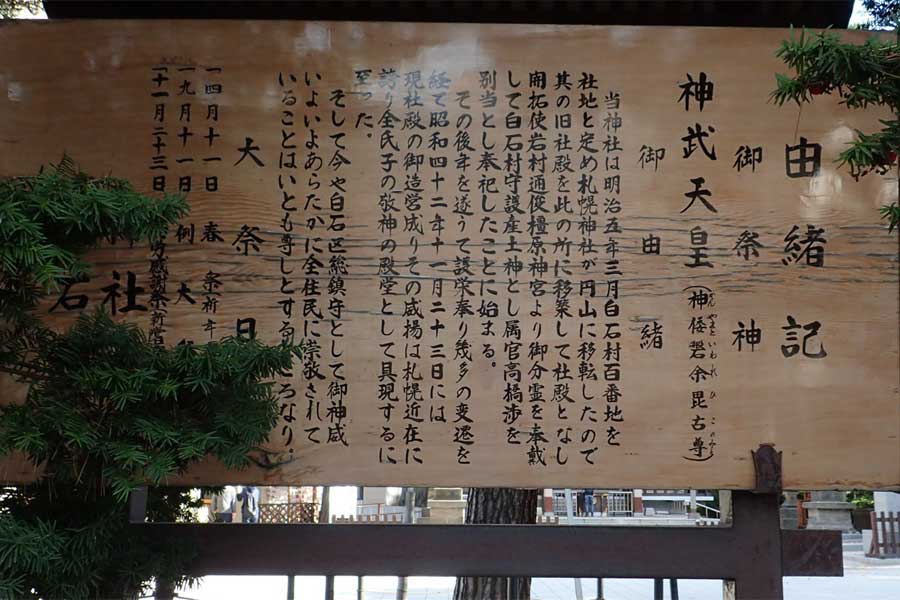 由緒記
御祭神
神武天皇（神倭磐余毘古尊）
かんやまといわれひこのみこと
御由緒
当神社は明治五年三月白石村百番地を
社地と定め札幌神社が円山に移転したので
其の旧社殿を此の所に移築して社殿となし
開拓使岩村通俊橿原神宮より御分霊を奉戴
して白石村守護産土神とし属官高橋渉を
別当とし奉祀したことに始まる。
その後年を遂うて護栄奉り幾多の変遷を
経て昭和四十二年十一月二十三日には
現社殿の御造営成りその威揚は札幌近在に
誇り全氏子の敬神の殿堂として具現するに
至った。
そして今や白石区総鎮守として御神威
いよいよあらたかに全住民に崇敬されて
いることはいとも尊しとするところなり。
大祭日
一四月十一日 春祭
一九月十一日 例大
一十一月二十三日
神社
石